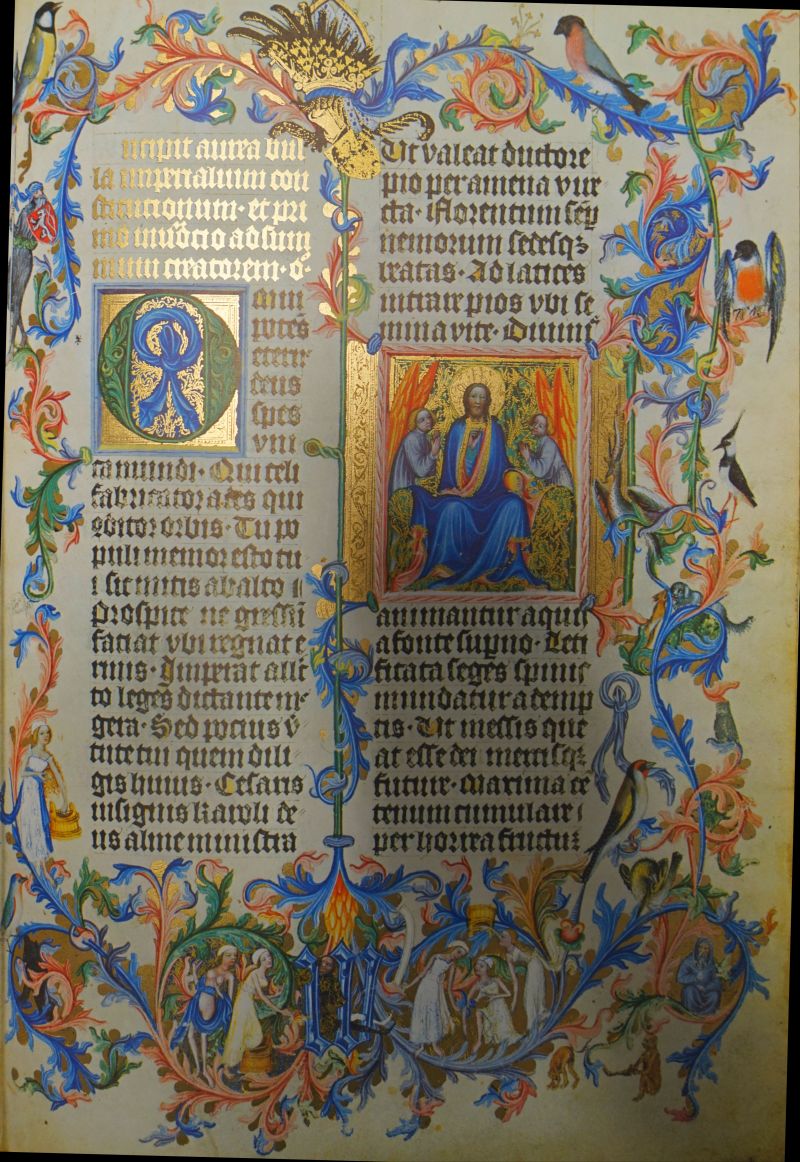 ncipit aurea bul
la imperialium con
stitucionum · et pri
mo inuocĩo ad sum
mum creatorem ·
mni
potēs
eterne
deus
spes
vni
ca mundi · Qui celi
fabricator ades qui
ꝯditor orbis · Tu po
puli memor esto tu
i sic mitis ab alto
Prospice ne gressū
faciat vbi regnat e
rinis · Imperat alle
cto leges dictante m
gera · Sed pocius v
tute tui quem dili
gis huius · Cesaris
insignis karoli de
us alme ministra
Ut valeat ductore
pio per amena vire
cta · Florentum semp
nemorum sedesqꝫ
beatas · Ad latices
intrare pios vbi se
mina vite · Diuinis
animantur aquis
a fonte supno · Leti
ficata seges spinis
mundatur ademp
tis · Ut messis que
at esse dei mercisqꝫ
future · Maxima ce
tenum cumulare
per horrea fructum